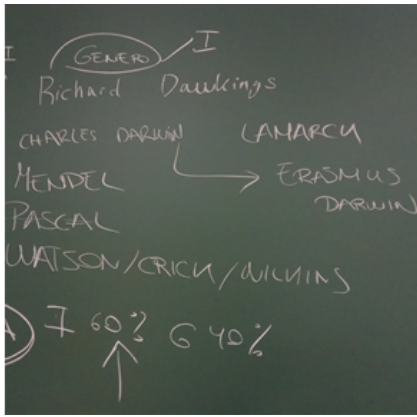 I GENERO I
Richard Dawkings
CHARLES DARWIN LAMARCK
MENDEL ERASMUS
DARWIN
PASCAL
WATSON/CRICK/WILKINS
A I 60% G 40%